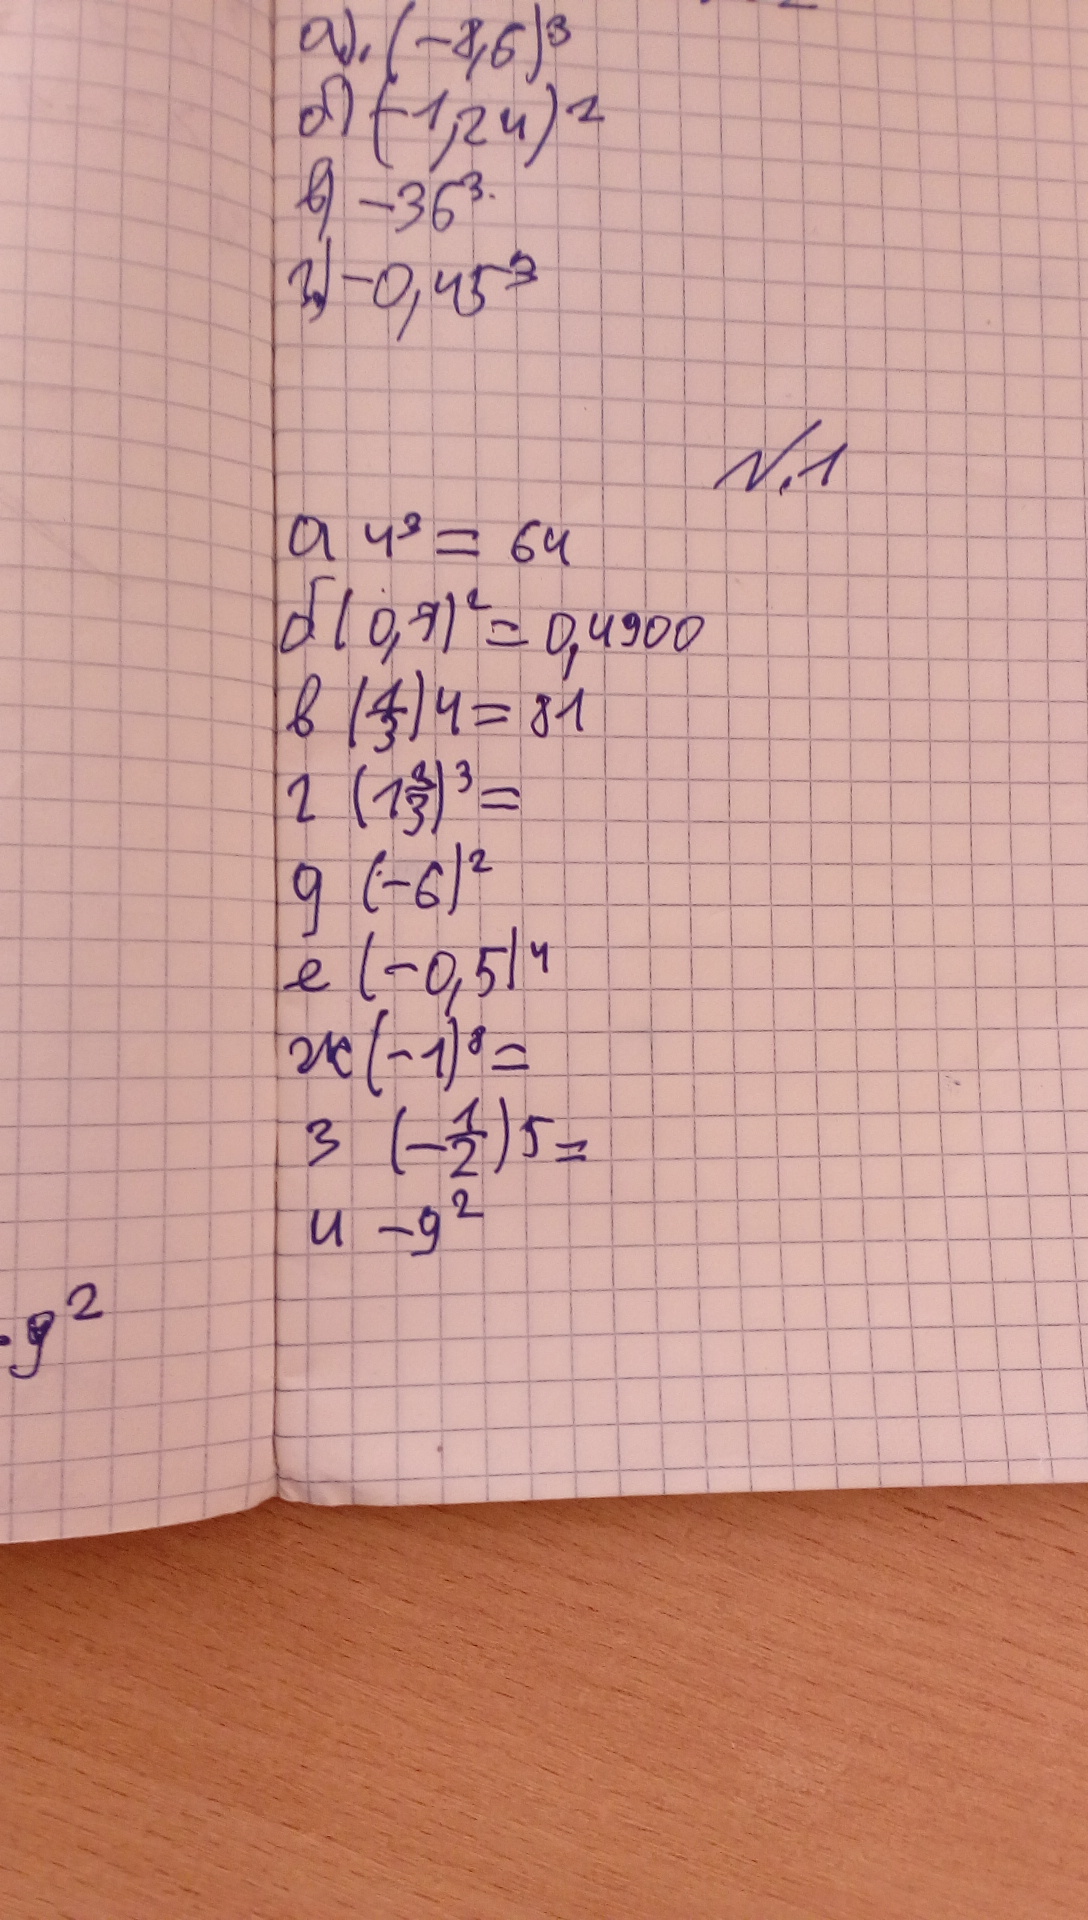 а). (-8,6)³
б) (-1,24)²
в) -36³
г) -0,45³
N.1
а 4³ = 64
б (0,7)² = 0,4900
в (1/3)4 = 81
г (1 2/3)³ =
д (-6)²
е (-0,5)⁴
ж (-1)⁸ =
з (-1/2)5 =
и -9²
9²